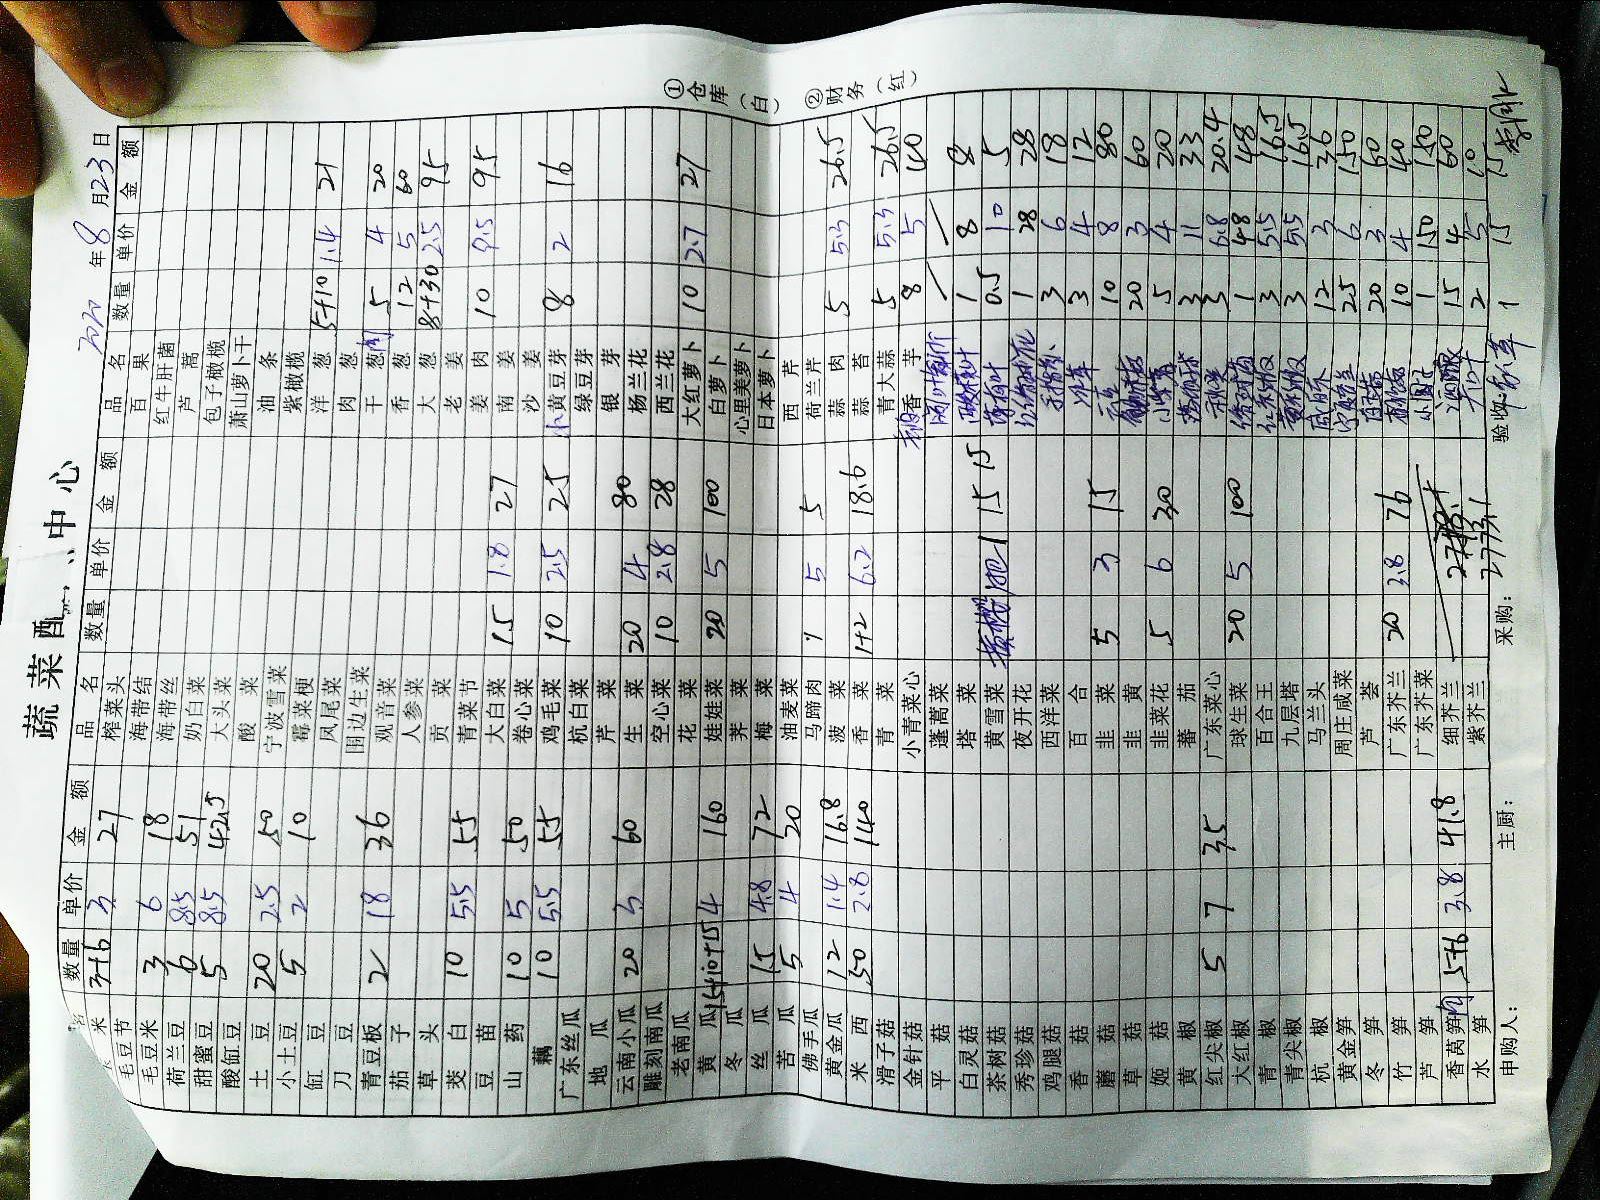 蔬菜配 中心
2020年8月23日
品名 数量 单价 金额
米 3+6 3 27
毛豆节
毛豆米 3 6 18
荷兰豆 6 8.5 51
甜蜜豆 5 8.5 42.5
酸缸豆
土豆 20 2.5 50
小土豆 5 2 10
缸豆
刀豆
青豆板 2 18 36
茄子
草头
茭白 10 5.5 55
豆苗
山药 10 5 50
藕 10 5.5 55
广东丝瓜
地瓜
云南小瓜 20 3 60
雕刻南瓜
老南瓜
黄瓜 15+10+15 4 160
冬瓜
丝瓜 15 4.8 72
苦瓜 5 4 20
佛手瓜
黄金瓜 12 1.4 16.8
米西 50 2.8 140
滑子菇
金针菇
平菇
白灵菇
茶树菇
秀珍菇
鸡腿菇
香菇
蘑菇
草菇
姬菇
黄椒
红尖椒 5 7 35
大红椒
青椒
青尖椒
杭椒
黄金笋
冬笋
竹笋
芦笋
香莴笋肉 5+6 3.8 41.8
水笋
品名 数量 单价 金额
榨菜头
海带结
海带丝
奶白菜
大头菜
酸菜
宁波雪菜
霉菜梗
凤尾菜
围边生菜
观音菜
人参菜
贡菜
青菜节
大白菜 15 1.8 27
卷心菜
鸡毛菜 10 2.5 25
杭白菜
芹菜
生菜 20 4 80
空心菜 10 2.8 28
花菜
娃娃菜 20 5 100
荠菜
梅菜
油麦菜
马蹄肉 1 5 5
菠菜
香菜 1+2 6.2 18.6
青菜
小青菜心
蓬蒿菜
塔菜
黄雪菜 15 15
夜开花
西洋菜
百合
韭菜 5 3 15
韭黄
韭菜花 5 6 30
蕃茄
广东菜心
球生菜 20 5 100
百合王
九层塔
马兰头
周庄咸菜
芦荟
广东芥兰 20 3.8 76
广东芥菜
细芥兰
紫芥兰 2773.1
品名 数量 单价 金额
百果
红牛肝菌
芦蒿
包子橄榄
萧山萝卜干
油条
紫橄榄
洋葱 5+10 1.4 21
肉葱
干葱肉 5 4 20
香葱 12 5 60
大葱 8+30 2.5 95
老姜
姜肉 10 9.5 95
南姜
沙姜
小黄豆芽 8 2 16
绿豆芽
银芽
杨兰花
西兰花
大红萝卜 10 2.7 27
白萝卜
心里美萝卜
日本萝卜
西芹
荷兰芹
蒜肉 5 5.3 26.5
蒜苔
青大蒜 5 5.3 26.5
香芋 8 5 40
1 8 8
0.5 10 5
1 28 28
3 6 18
3 4 12
10 8 80
20 3 60
5 4 20
3 11 33
3 6.8 20.4
1 48 48
3 5.5 16.5
3 5.5 16.5
12 3 36
25 6 150
20 3 60
10 4 40
1 150 150
15 4 60
2 5 10
1 15 15
申购人： 主厨： 采购： 验收：
①仓库（白） ②财务（红）